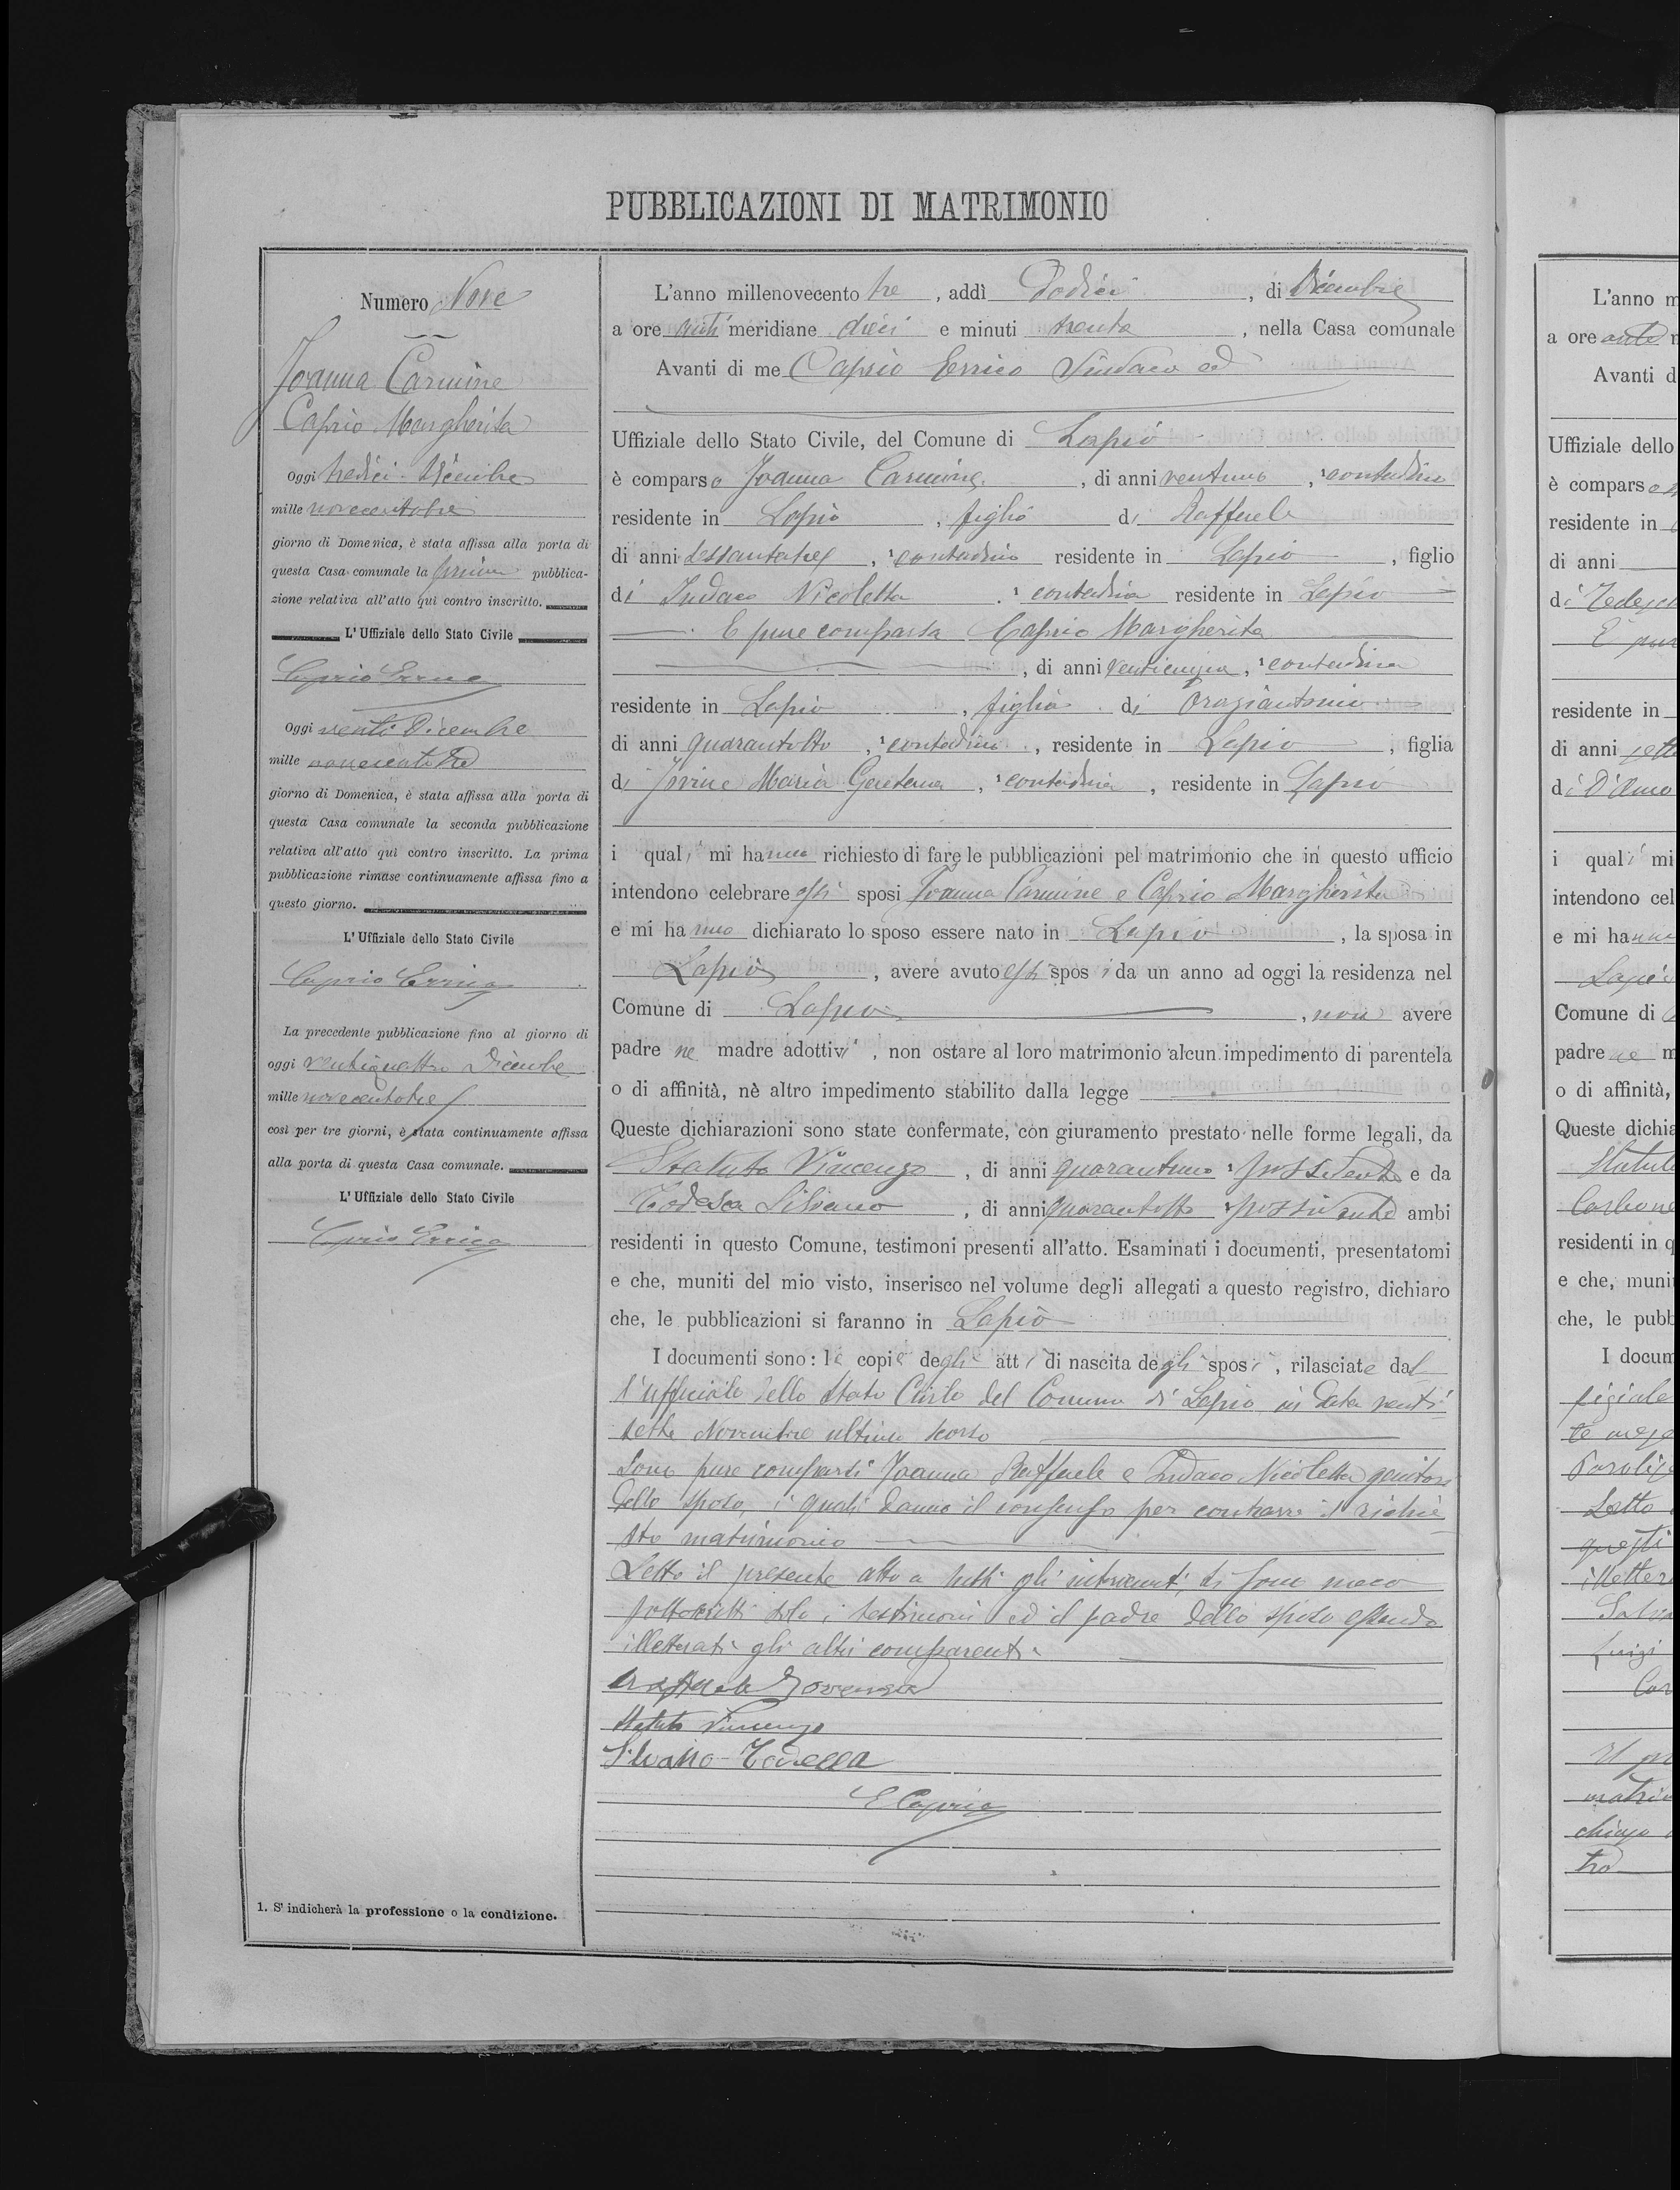 PUBBLICAZIONI DI MATRIMONIO
Numero Nove
Joanna Carmine
Caprio Margherita
Oggi tredici Dicembre
mille novecentotre
giorno di Domenica, è stata affissa alla porta di
questa Casa comunale la prima pubblica-
zione relativa all'atto quì contro inscritto.
L'Uffiziale dello Stato Civile
Caprio Errico
Oggi venti Dicembre
mille novecentotre
giorno di Domenica, è stata affissa alla porta di
questa Casa comunale la seconda pubblicazione
relativa all'atto quì contro inscritto. La prima
pubblicazione rimase continuamente affissa fino a
questo giorno.
L'Uffiziale dello Stato Civile
Caprio Errico
La precedente pubblicazione fino al giorno di
oggi ventiquattro Dicembre
mille novecentotre
così per tre giorni, è stata continuamente affissa
alla porta di questa Casa comunale.
L'Uffiziale dello Stato Civile
Caprio Errico
1. S' indicherà la professione o la condizione.
L'anno millenovecento tre, addì Dodici, di Dicembre
a ore anti meridiane dieci e minuti trenta, nella Casa comunale
Avanti di me Caprio Errico Sindaco ed
Uffiziale dello Stato Civile, del Comune di Lapio
è comparso Joanna Carmine, di anni ventuno, ¹ contadino
residente in Lapio, figlio di Raffaele
di anni sessantatre, ¹ contadino residente in Lapio, figlio
di Indaco Nicoletta, ¹ contadina residente in Lapio
E pure comparsa Caprio Margherita
, di anni venticinque, ¹ contadina
residente in Lapio, figlia di Oraziantonio
di anni quarantotto, ¹ contadino, residente in Lapio, figlia
di Maria Gaetana, ¹ contadina, residente in Lapio
i quali mi hanno richiesto di fare le pubblicazioni pel matrimonio che in questo ufficio
intendono celebrare essi sposi Joanna Carmine e Caprio Margherita
e mi hanno dichiarato lo sposo essere nato in Lapio, la sposa in
Lapio, avere avuto essi sposi da un anno ad oggi la residenza nel
Comune di Lapio, non avere
padre ne madre adottivi, non ostare al loro matrimonio alcun impedimento di parentela
o di affinità, nè altro impedimento stabilito dalla legge
Queste dichiarazioni sono state confermate, con giuramento prestato nelle forme legali, da
Statuto Vincenzo, di anni quarantuno ¹ possidente e da
Todesca Silvano, di anni quarantotto ¹ possidente ambi
residenti in questo Comune, testimoni presenti all'atto. Esaminati i documenti, presentatomi
e che, muniti del mio visto, inserisco nel volume degli allegati a questo registro, dichiaro
che, le pubblicazioni si faranno in Lapio
I documenti sono: le copie degli atti di nascita degli sposi, rilasciate dal
l'ufficiale dello Stato Civile del Comune di Lapio in data venti
sette Novembre ultimo scorso
Sono pure comparsi Joanna Raffaele e Indaco Nicoletta genitori
dello sposo, i quali danno il consenso per contrarre il richie
sto matrimonio
Letto il presente atto a tutti gli intervenuti, si sono meco
sottoscritti solo i testimoni ed il padre dello sposo essendo
illetterati gli altri comparenti
Statuto Vincenzo
Silvano Todesca
E Caprio
L'anno m
a ore ante m
Avanti d
Uffiziale dello
è comparso
residente in
di anni
di Tedesc
E pur
residente in
di anni sett
di D'Amo
i quali mi
intendono cel
e mi hanno
Lapio
Comune di
padre ne m
o di affinità,
Queste dichia
Statuto
Carbone
residenti in q
e che, muni
che, le pubb
I docum
ficiale
Letto
questi
illetter
Luigi
Car
matrim